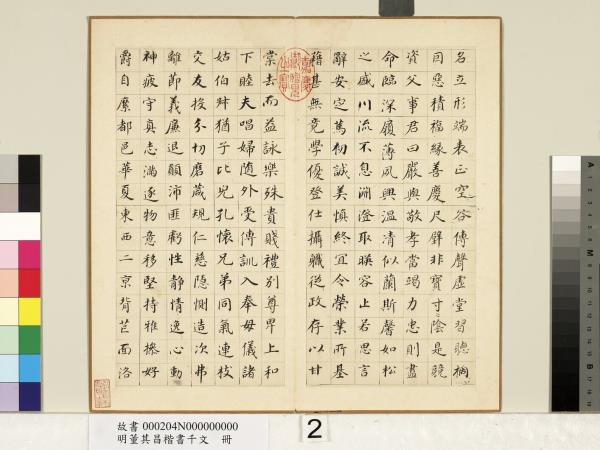 名立形端表正空谷傳聲虛堂習聽禍
因惡積福緣善慶尺璧非寶寸陰是競
資父事君曰嚴與敬孝當竭力忠則盡
命臨深履薄夙興溫清似蘭斯馨如松
之盛川流不息淵澄取暎容止若思言
辭安定篤初誠美慎終宜令榮業所基
籍甚無竟學優登仕攝職從政存以甘
棠去而益詠樂殊貴賤禮別尊卑上和
下睦夫唱婦隨外受傅訓入奉母儀諸
姑伯叔猶子比兒孔懷兄弟同氣連枝
交友投分切磨箴規仁慈隱惻造次弗
離節義廉退顛沛匪虧性靜情逸心動
神疲守真志滿逐物意移堅持雅操好
爵自縻都邑華夏東西二京背芒面洛
嘉慶御覽之寶
故書 000204N000000000
明董其昌楷書千文 冊
2